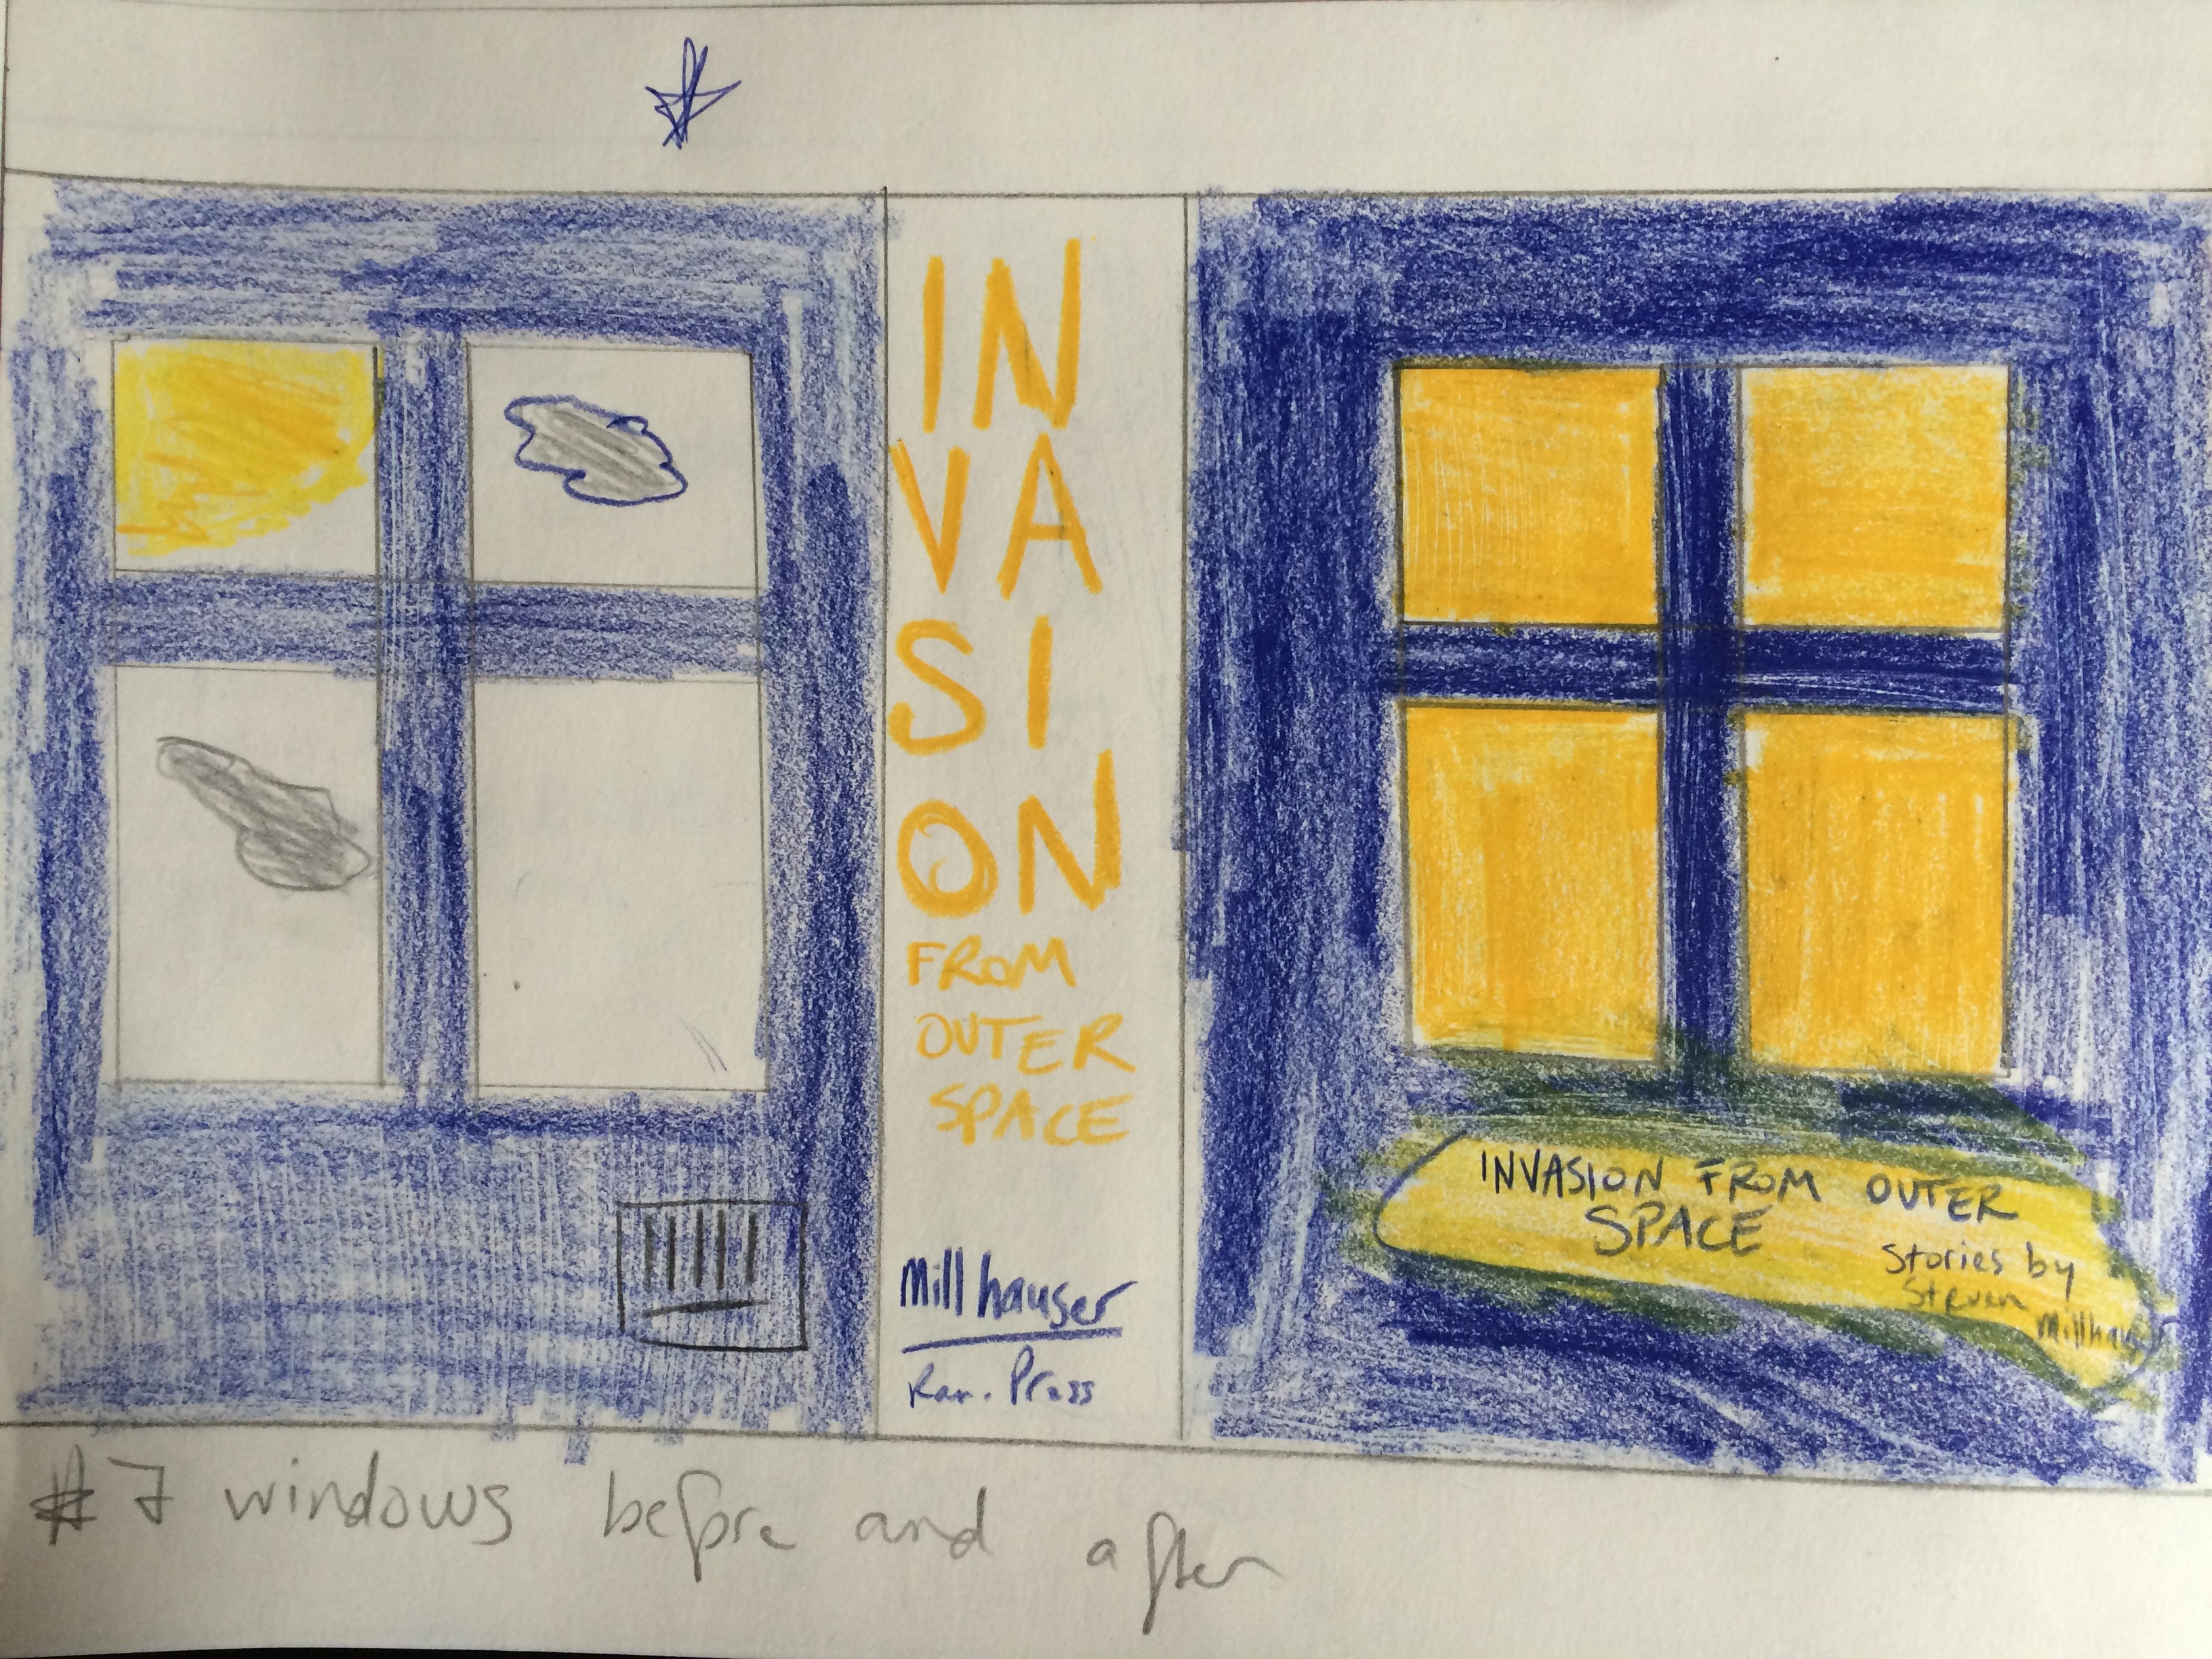 IN
VA
SI
ON
FROM
OUTER
SPACE
Millhauser
Ran. Press
INVASION FROM OUTER
SPACE
Stories by
Steven
Millhauser
#7 windows before and after